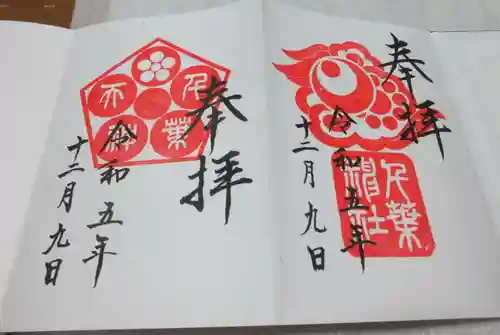 奉拝
令和五年
十二月九日
千葉
神社
奉拝
令和五年
十二月九日
千葉天神